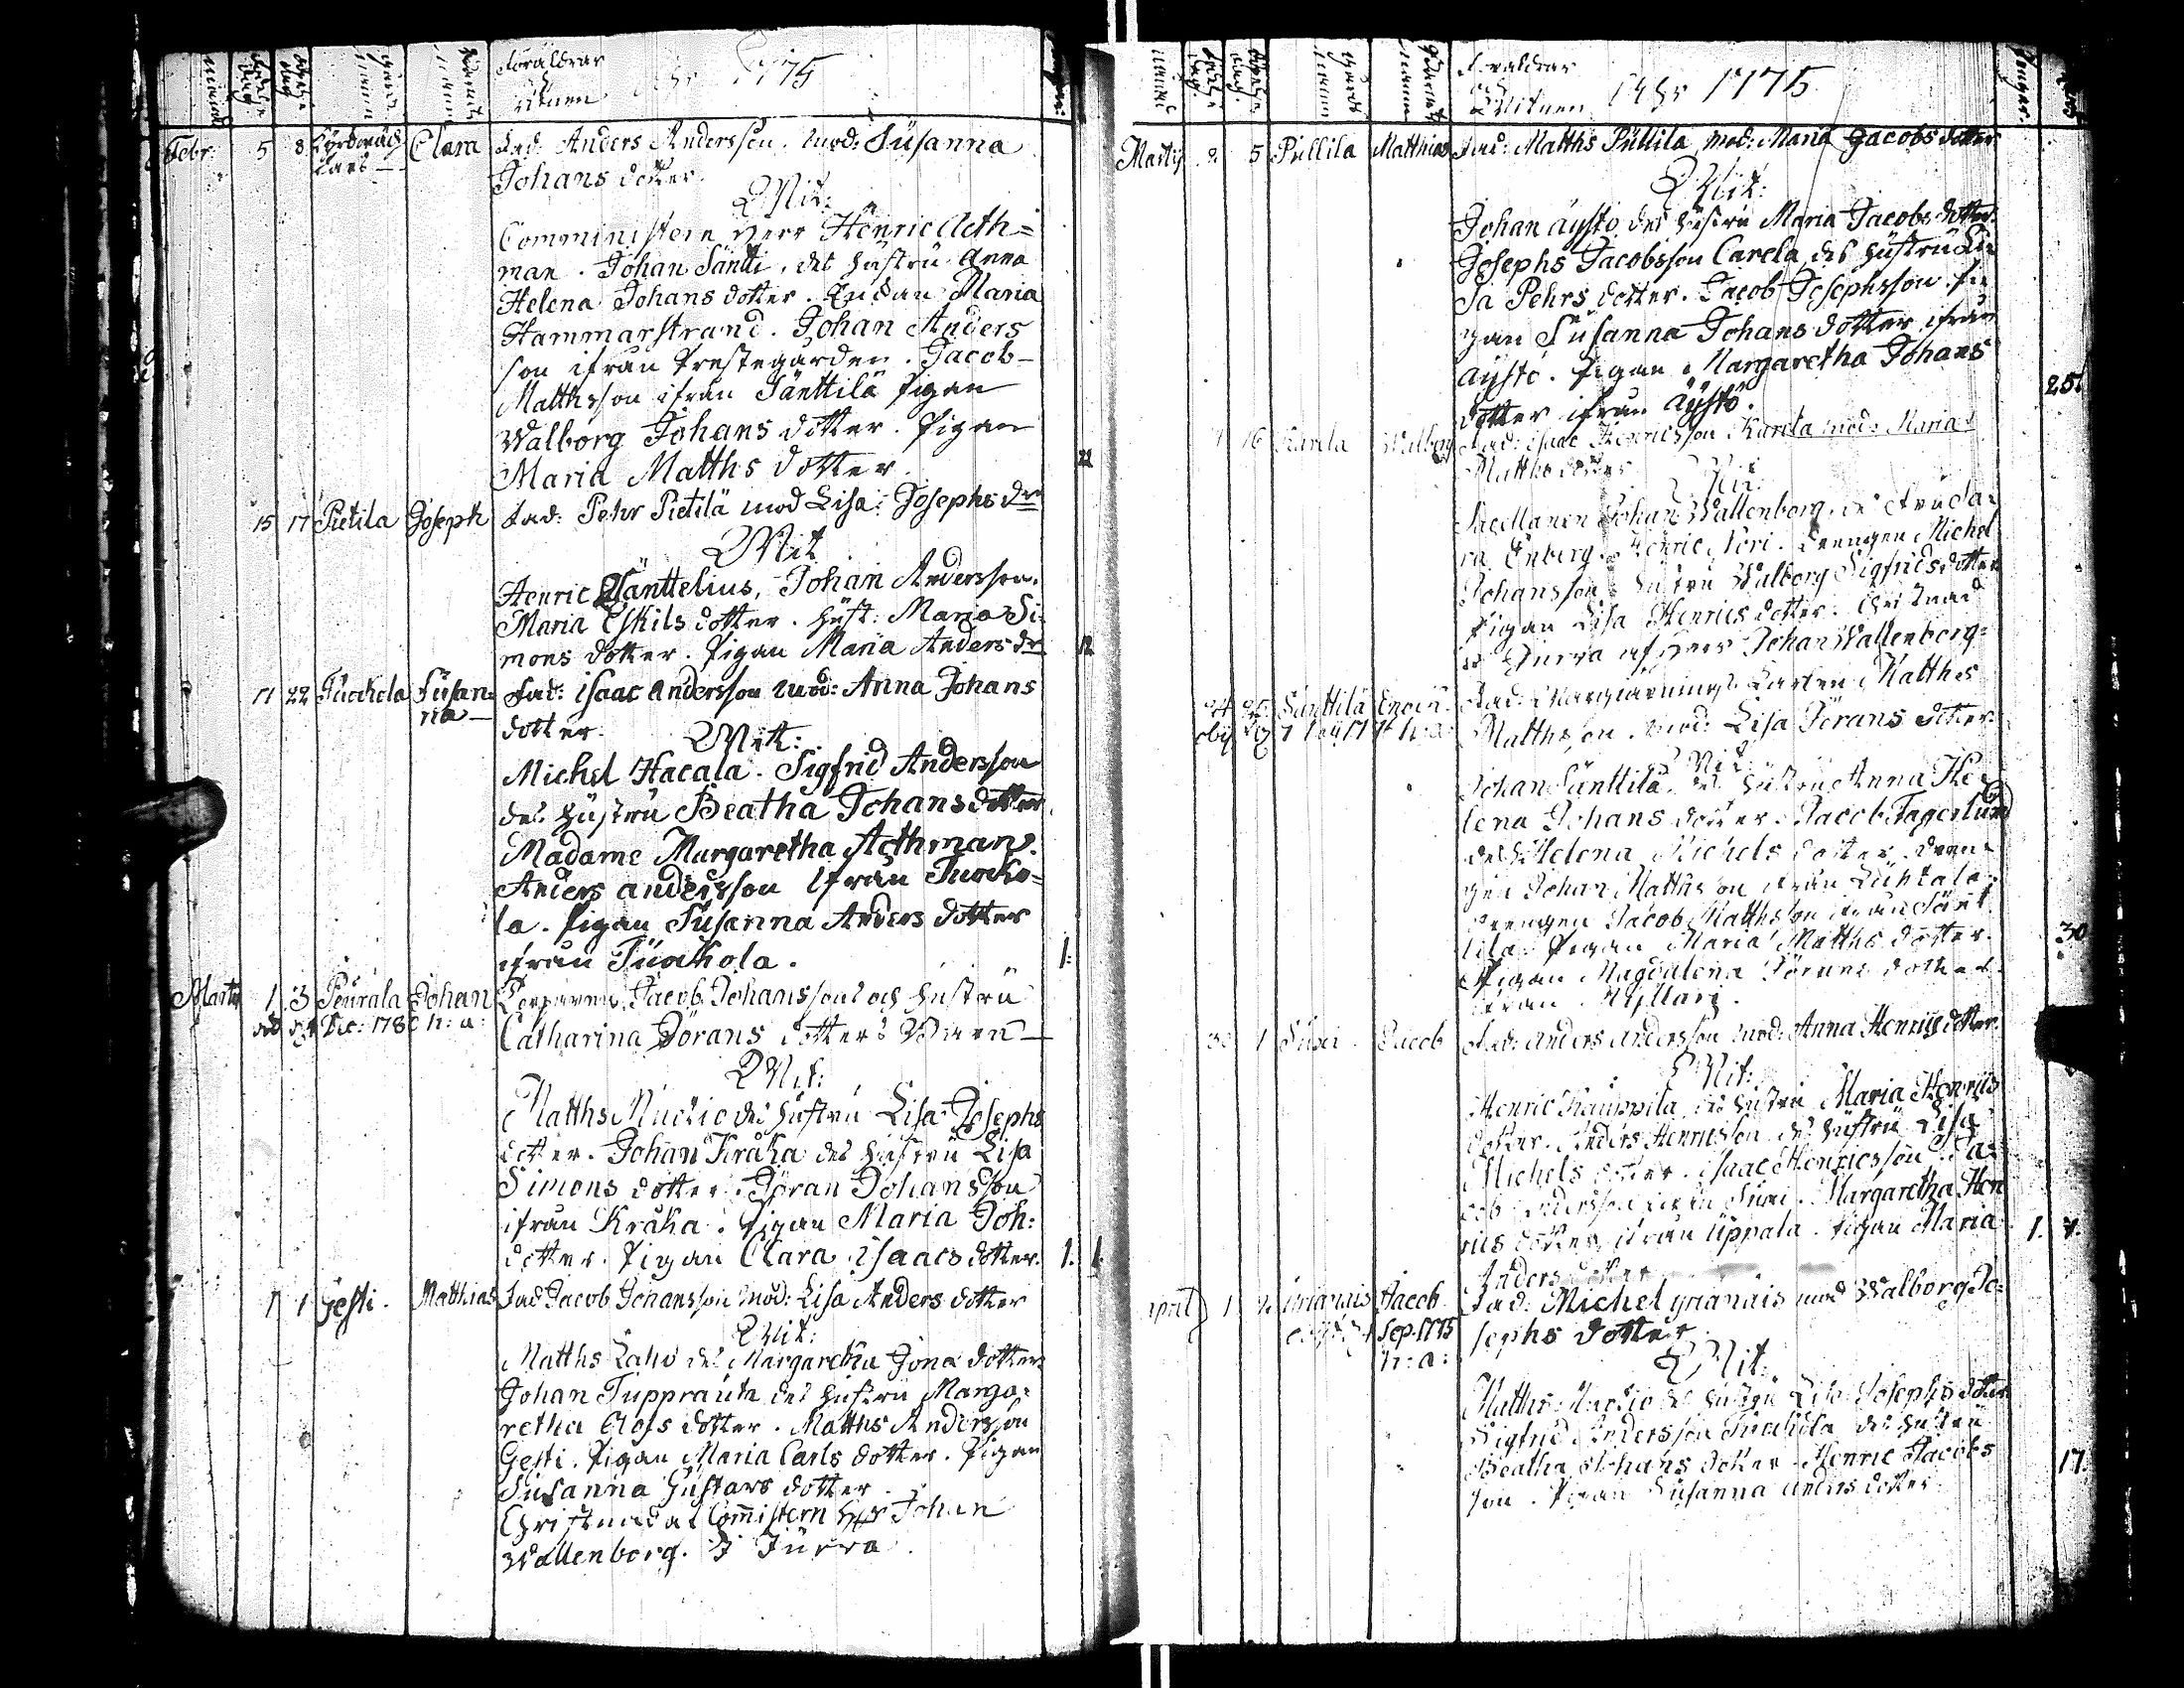 Föräldrar
och
Witnen
Åhr 1775
Febr: 5 8 Clara Fad: Anders Andersson. Mod: Susanna
Johans dotter.
Wit:
Comministern Herr Henric Aeth=
man. Johan Säntti, des hustru Anna
Helena Johans dotter. Maria
Hammarstrand. Johan Anders
son ifrån Prestegården. Jacob
Matthsson ifrån Sänttilä Pigan
Walborg Johans dotter. Pigan
Maria Matths dotter.
22
15 17 Pietila Joseph Fad: Pehr Pietilä mod Lisa Josephs dr
Wit
Henric Sänttelius, Johan Andersson.
Maria Eskils dotter. Hust: Maria Si=
mons dotter. Pigan Maria Anders dr
12
17 22 Tuokola Susan= Fad: isaac Andersson Mod: Anna Johans
na dotter.
Wit:
Michel Hacala. Sigfrid Andersson
des Hustru Beatha Johansdotter
Madame Margaretha Aethman.
Anders andersson ifrån Tuoko=
la. Pigan Susanna Anders dotter
ifrån Tuokola.
1:
Martij 1 3 Peurala Johan Jacob Johanssons och hustru
Dec: 1780 n: a: Catharina Jörans dotters Barn
Wit:
Matths Nuckio des hustru Lisa Josephs
dotter. Johan Kråka des hustru Lisa
Simons dotter. Jöran Johansson
ifrån Kråka. Pigan Maria Joh:
dotter. Pigan Clara isaacs dotter.
1. 1.
1 Gesti. Matthias Fad Jacob Johansson Mod: Lisa Anders dotter
Wit:
Matths Laho des Margaretha Jöna dotter
Johan Tuppräuta des hustru Marga=
retha Clofs dotter. Matths Andersson
Gesti. Pigan Maria Carls dotter. Pigan
Susanna Gustavs dotter.
Christnad af Comistern Hr Johan
Wallenborg. I Jurva.
Föräldrar
och
Witnen
Åhr 1775
Martij 2 5 Pullila Matthias Fad: Matths Pullila Mod: Maria Jacobs dotter
Wit:
Johan äystö, des hustru Maria Jacobs dotter
Josephs Jacobsson Carela des hustru Li
sa Pehrs dotter. Jacob Josephsson Pi
gan Susanna Johans dotter ifrån
äystö. Pigan Margaretha Johans
dotter ifrån äystö.
25.
16 Karela Walborg Fad: isaac Henricsson Karela mod: Maria
Matths dotter.
Wit:
Sacellanen Johan Wallenborg,
Enberg. Henric. Drengen Michel
Johansson hustru Walborg Sigfrids dotter
Pigan Lisa Henrics dotter. Christnad
i Jurva af Herr Johan Wallenborg.
Sänttilä Fad: Matths
Matthsson. mod: Lisa Jörans dotter.
Wit:
Johan Sänttilä. des hustru Anna He=
lena Johans dotter. Jacob Fagerlund
des H: Helena Michels dotter. Dren=
gen Johan Matthsson ifrån Luhtala.
Drengen Jacob Matthsson ifrån Sänt
tila. Pigan Maria Matths dotter.
Pigan Magdalena Jörans dotter
ifrån Myllari.
30
30 1 Jacob Fad: anders andersson Mod: Anna Henrics dotter.
Wit:
Henric Kauppila des hustru Maria Henrics
dotter. Anders Henricsson des hustru Lisa
Michels dotter. isaac Henricsson. Ja=
cob Andersson ifrån. Margaretha Hen
rics dotter ifrån Uppala. Pigan Maria
Anders dotter
1. 7.
April 1 Jacob Fad: Michel mod Walborg Jo=
Sep. 1775 sephs dotter.
n: a:
Wit:
Matths Nuckio des hustru Lisa Josephs dotter
Sigfrid Andersson des hustru
Beatha Johans dotter. Henric Jacobs
son. Pigan Susanna anders dotter.
17.